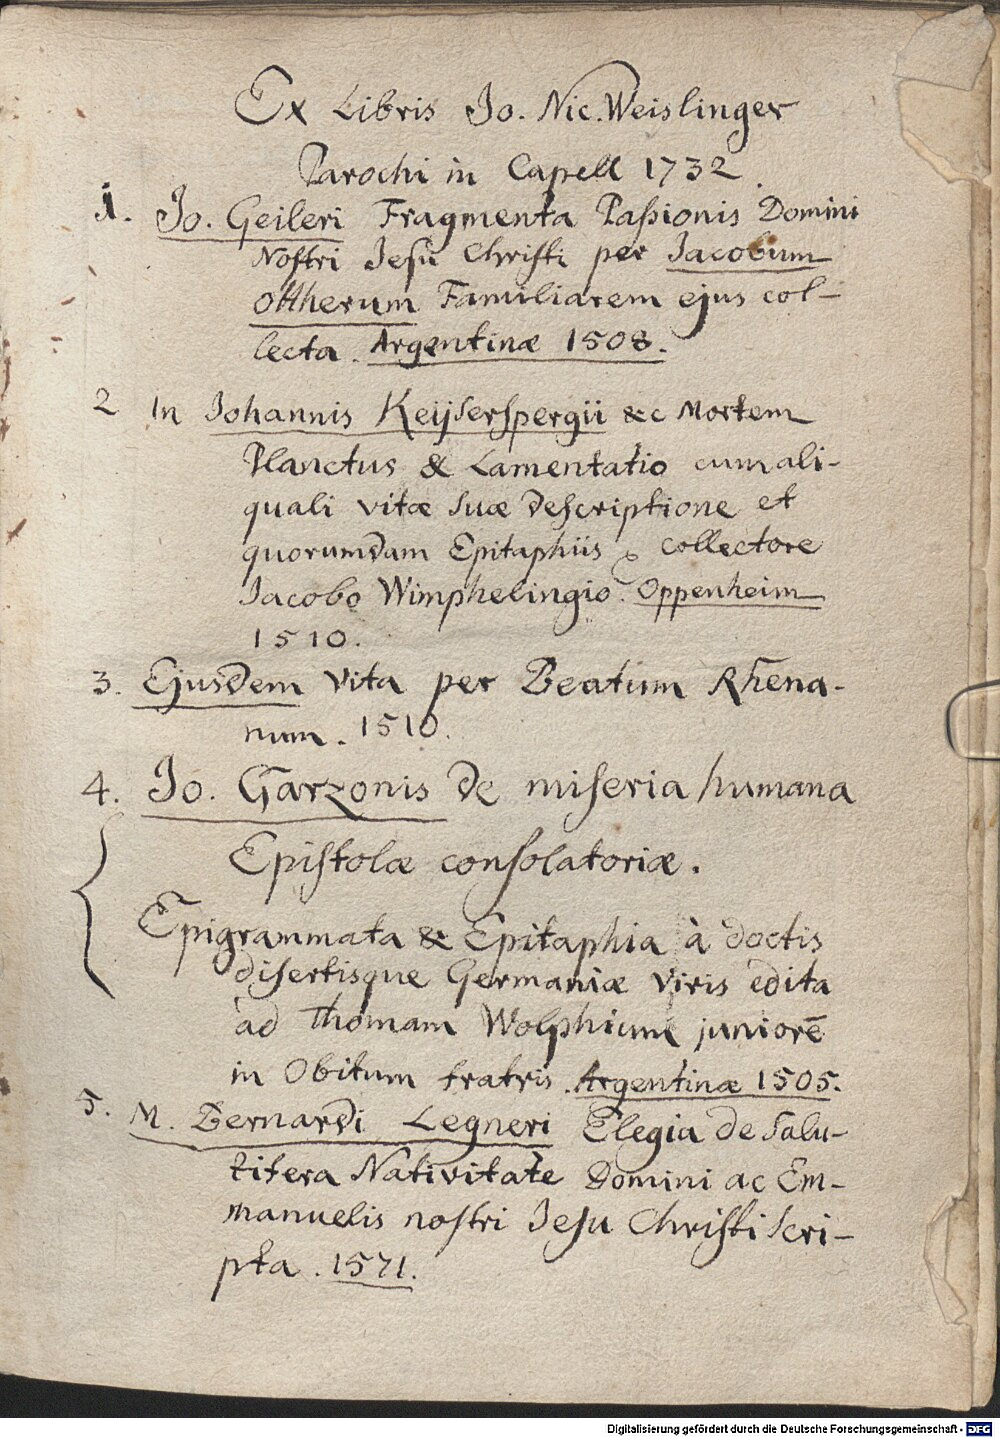 Ex Libris Jo. Nic. Weislinger
Parochi in Capell 1732.
1. Jo. Geileri Fragmenta Paßionis Domini
Nostri Jesu Christi per Jacobum
Ottherum Familiarem ejus col-
lecta. Argentinæ 1508.
2 In Johannis Keyserspergii &c Mortem
Planctus & Lamentatio cum ali-
quali vitæ suæ descriptione et
quorumdam Epitaphiis collectore
Jacobo Wimphelingio. Oppenheim
1510.
3. Ejusdem vita per Beatum Rhena-
num. 1510.
4. Jo. Garzonis de miseria humana
Epistolæ consolatoriæ.
Epigrammata & Epitaphia à doctis
disertisque Germaniæ viris edita
ad Thomam Wolphium juniorē
in Obitum fratris. Argentinæ 1505.
5. M. Bernardi Legneri Elegia de salu-
tifera Nativitate Domini ac Em-
manuelis nostri Jesu Christi scri-
pta. 1571.
Digitalisierung gefördert durch die Deutsche Forschungsgemeinschaft - DFG